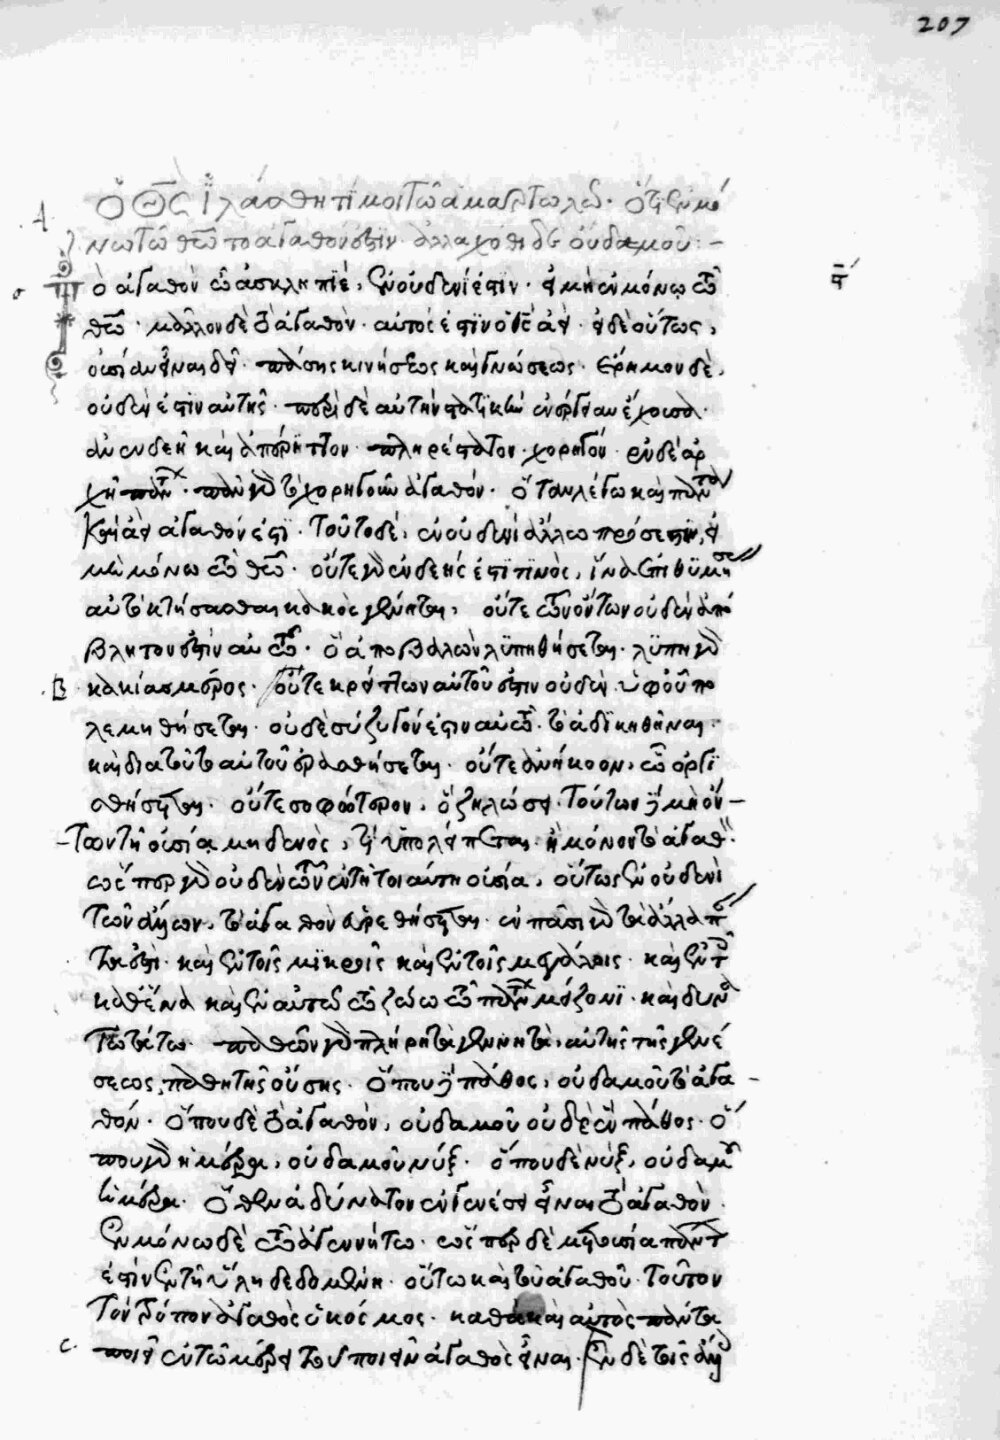 207
ὁ Θς ἱλάσθητί μοι τῷ ἁμαρτωλῷ. ὅτι ἐν μό
Α
νω τῷ θεῷ τὸ ἀγαθόν ἐστιν. ἀλλαχόθι δὲ οὐδαμοῦ:–
Τὸ ἀγαθὸν ὦ ἀσκληπιὲ, ἐν οὐδενί ἐστιν. εἰ μὴ ἐν μόνῳ τῷ
θεῷ. μᾶλλον δὲ τὸ ἀγαθὸν. αὐτός ἐστιν ὁ θς ἀεί. εἰ δὲ οὕτως,
οὐσίαν εἶναι δεῖ. πάσης κινήσεως καὶ γενέσεως. ἔρημον δὲ
οὐδέν ἐστιν αὐτῆς. περὶ δὲ αὐτὴν στατικὴν ἐνέργειαν ἔχουσαν.
ἀνενδεῆ καὶ ἀπέριττον. πληρέστατον. χορηγόν. ἐν δὲ ἀρ
χῇ πάντων. πᾶν γὰρ τὸ χορηγοῦν ἀγαθόν. ὅταν λέγω καὶ πάντα
καὶ ἀεὶ ἀγαθόν ἐστι. τοῦτο δὲ, ἐν οὐδενὶ ἄλλω πρόσεστιν, εἰ
μὴ μόνω τῷ θεῷ. οὔτε γὰρ ἐνδεής ἐστί τινος, ἵνα ἐπιθυμήσας
αὐτὸ κτήσασθαι κακὸς γένηται, οὔτε τῶν ὄντων οὐδὲν ἀπό
βλητόν ἐστιν αὐτῷ. ὃ ἀποβαλὼν λυπηθήσεται. λύπη γὰρ
Β
κακίας μέρος. οὔτε κρεῖττον αὐτοῦ ἐστιν οὐδὲν. ὑφ' οὗ πο
λεμηθήσεται. οὐδὲ σύζυγόν ἐστιν αὐτῷ. τὸ ἀδικηθῆναι.
καὶ διὰ τοῦτο αὐτοῦ ἐρασθήσεται. οὔτε ἀνήκοον, ᾧ ὀργι
σθήσεται. οὔτε σοφώτερον, ὃ ζηλώσει. τούτων δὲ μὴ ὄν–
των τῇ οὐσίᾳ μηδενὸς, τί ὑπολείπεται ἢ μόνον τὸ ἀγαθ.
ὥσπερ γὰρ οὐδὲν τῶν ἐν τῇ τοιαύτῃ οὐσίᾳ, οὕτως ἐν οὐδενὶ
τῶν ἄλλων, τὸ ἀγαθὸν εὑρεθήσεται. ἐν πᾶσι γὰρ τὰ ἄλλα πάν
τα ἐστὶ. καὶ ἐν τοῖς μικροῖς καὶ ἐν τοῖς μεγάλοις. καὶ ἐν τοῖς
καθ' ἕνα καὶ ἐν αὐτῷ τῷ ζώω τῷ πάντων μείζονι. καὶ δυνα
τωτάτω. παθῶν γὰρ πλήρη τὰ γεννητὰ, αὐτῆς τῆς γενέ
σεως, παθητῆς οὔσης. ὅπου δὲ πάθος, οὐδαμοῦ τὸ ἀγα–
θόν. ὅπου δὲ τὸ ἀγαθὸν, οὐδαμοῦ οὐδὲ ἓν πάθος. ὅ
που γὰρ ἡμέρα, οὐδαμοῦ νύξ. ὅπου δὲ νὺξ, οὐδαμοῦ
ἡμέρα. ὅθεν ἀδύνατον ἐν γενέσει εἶναι τὸ ἀγαθὸν.
ἐν μόνω δὲ τῷ ἀγεννήτω. ὥσπερ δὲ μετουσία πάντων
ἐστὶν ἐν τῇ ὕλῃ δεδομένη. οὕτω καὶ τοῦ ἀγαθοῦ. τοῦτον
τὸν τρόπον ἀγαθὸς ὁ κόσμος. καθὰ καὶ αὐτὸς πάντα
C
ποιεῖ ἐν τῷ μέρει τοῦ ποιεῖν ἀγαθὸς εἶναι. ἐν δὲ τοῖς ἄλλ